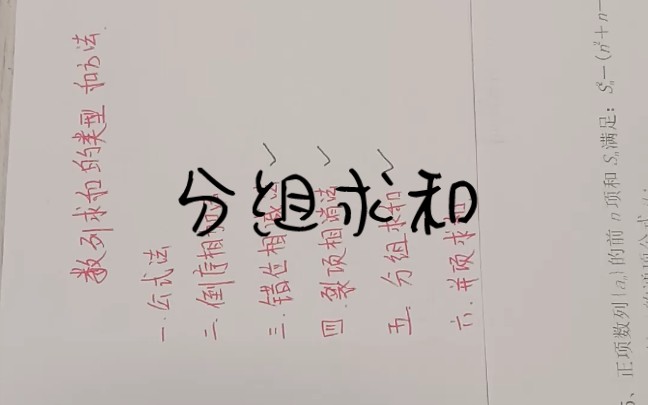 分组求和
数列求和的类型和方法
一.公式法
二.倒序相加
三.错位相减法
四.裂项相消法
五.分组求和
六.并项求和
正项数列{aₙ}的前n项和Sₙ满足：Sₙ²－(n²＋n－